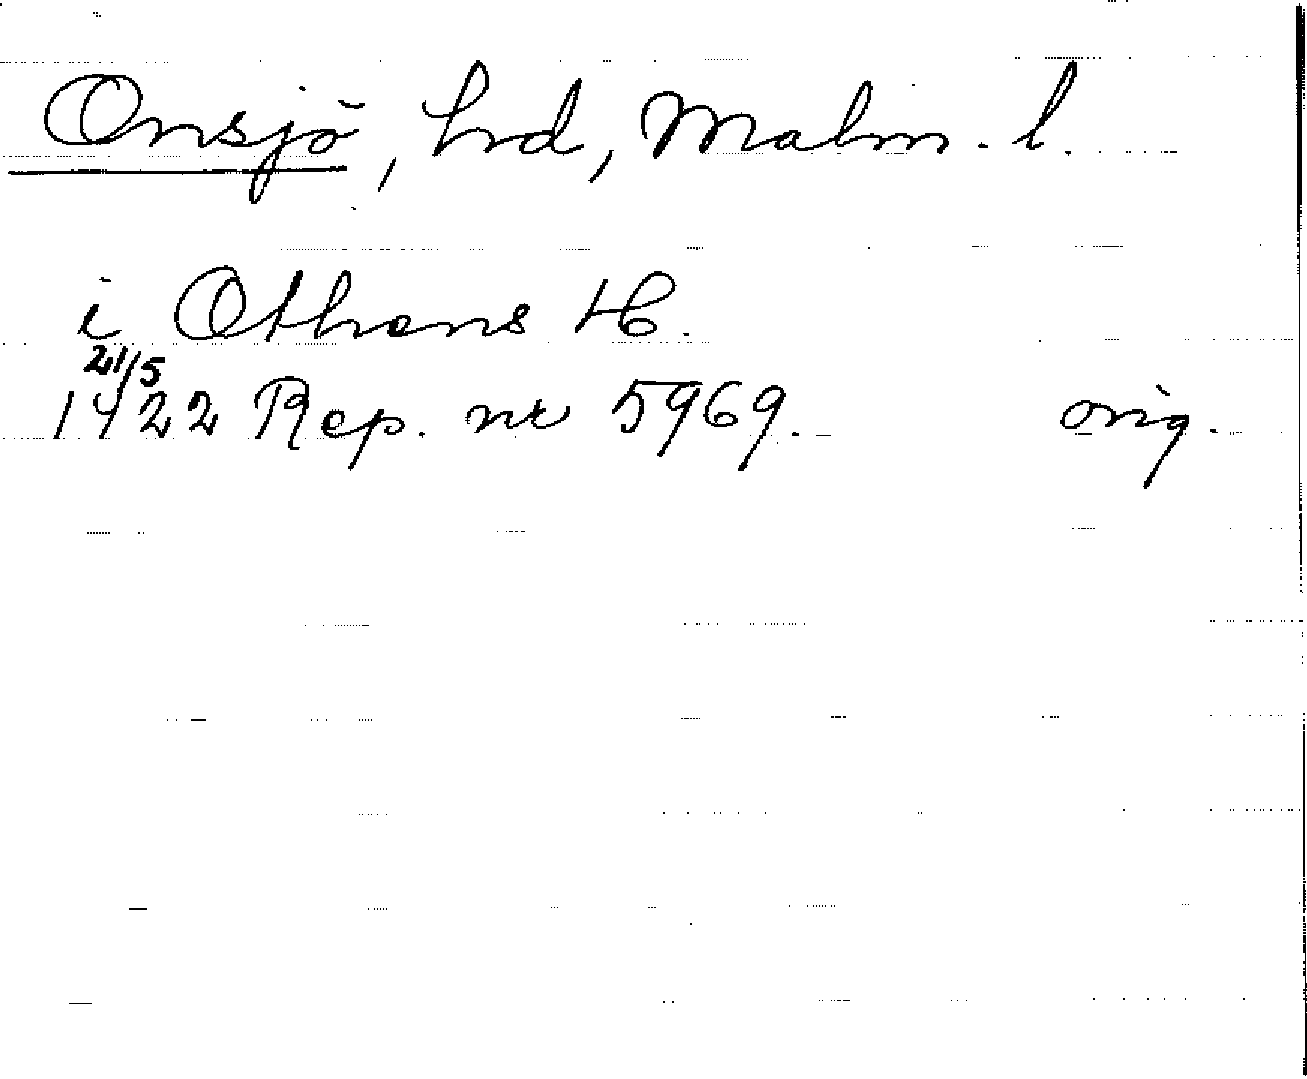 Onsjö, hrd, Malm. l.
i Othens H.
21/5
1422 Rep. nr 5969. orig.